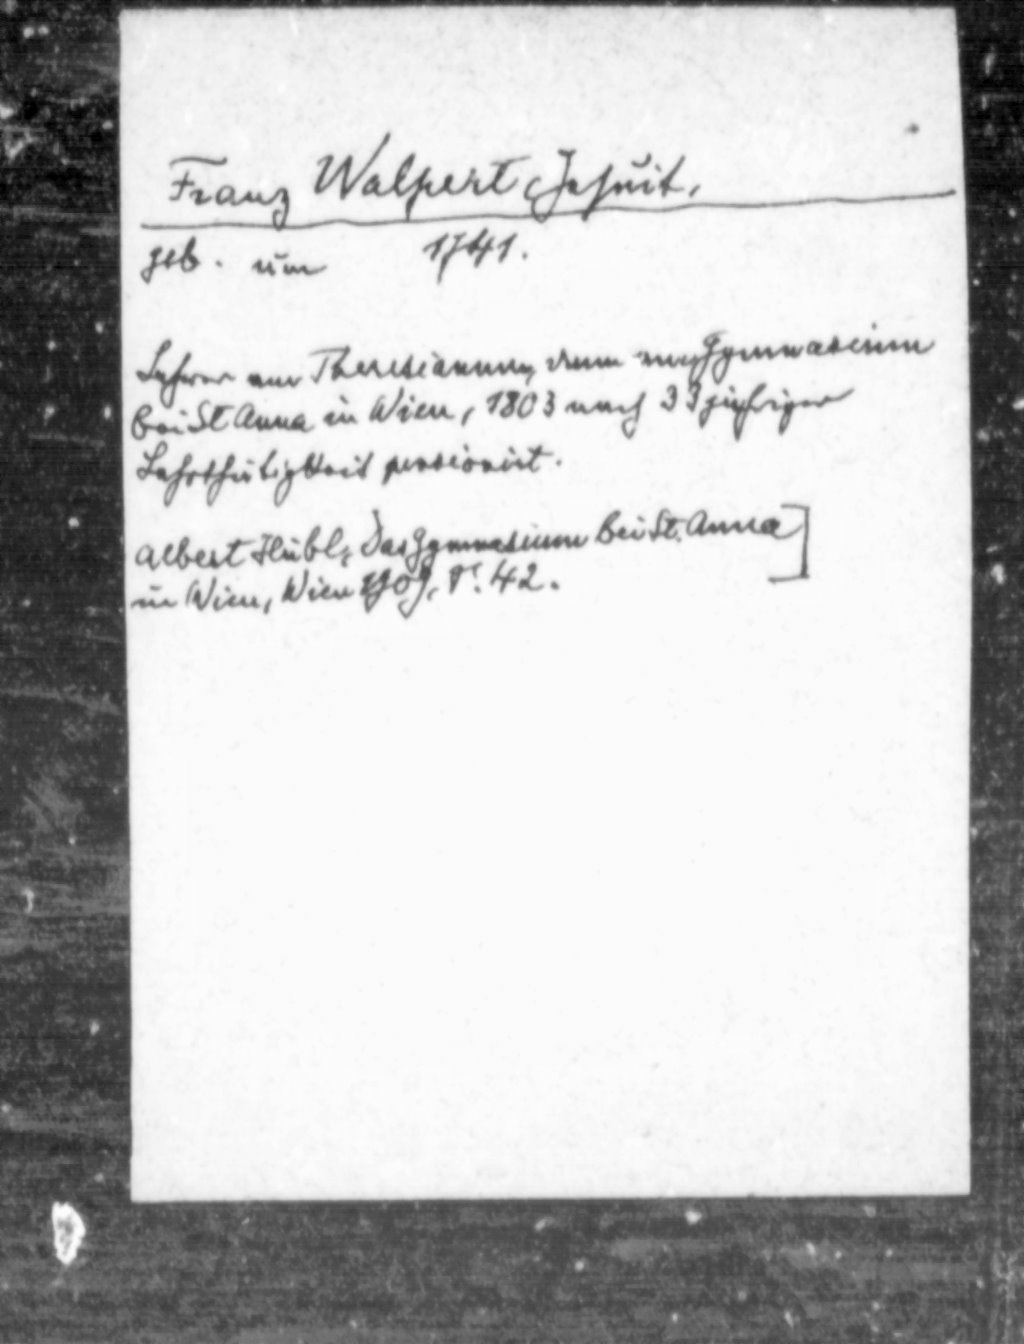 Franz Walpert, Jesuit.
geb. um 1741.
Lehrer am Theresianum, dann am Gymnasium
bei St Anna in Wien, 1803 nach 33 jähriger
Lehrthätigkeit pensionirt.
Albert Hübl, Das Gymnasium bei St. Anna
in Wien, Wien 1909, S. 42.]